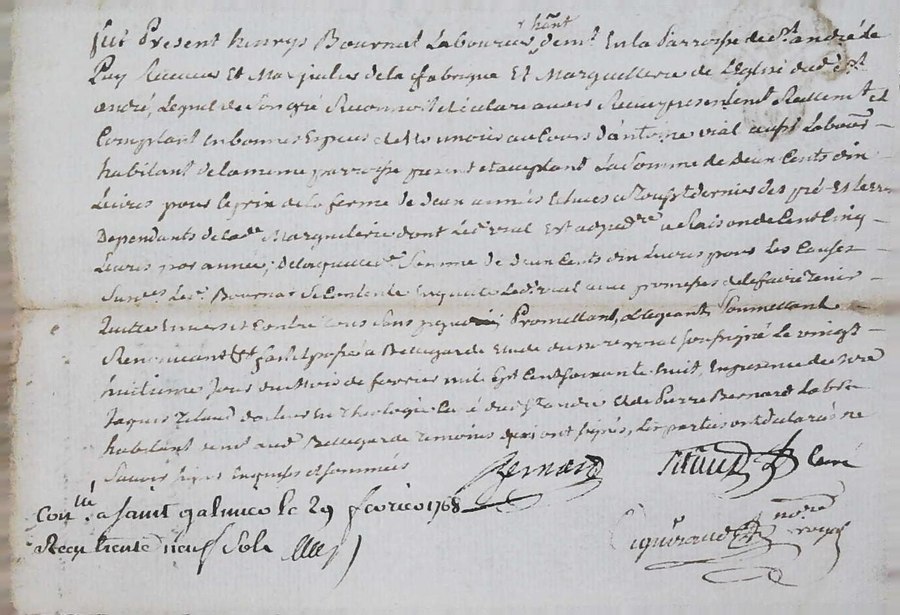 fut Present henrys Bournat Laboureur hant demt En la Parroisse de st andré le
Puy Et Marguiles de la fabrique Et Marguillerie de L'Eglise dud st
andré, Lequel de Son gré Reconnoit et declare avoir Receu presentemt Reellemt et
Comptant en bonnes Espèces de au cours d'antoine vial aussy Labour
habitant de la meme parroisse present et acceptant La Somme de deux Cents dix
Livres pour le prix de la ferme de deux années Echues a Tousst dernier des pré Et terre
Dependants de lade Marguilerie dont led vial Est adjudre a Raison de Cent Cinq
Livres par année, De laquelle de Somme de deux Cents dix Livres pour Les Causes
Sus Led Bournat Se Contente En quitte Led vial avec promesse de le faire Tenir
Quitte Envers et Contre tous Sans Promettant, obligeant, Soumettant
Renonçant &t fait et passé a Bellegarde Etude du nore royal soussigné Le vingt
huitieme Jour du Mois de fevrier mil Sept Cent soixante huit, En presence de sore
Jaques Ritaud docteur En Theologie Curé dud st andre Et de Pierre Bernard Labr
habitant aud Bellegarde Temoins qui ont signés, Les parties ont declarés ne
Sauoir signer Enquises et sommées
Bernard Ritaud Curé
Conllé a saint galmier le 29 fevrier 1768
a Reçu trente neuf Sols
nore royal